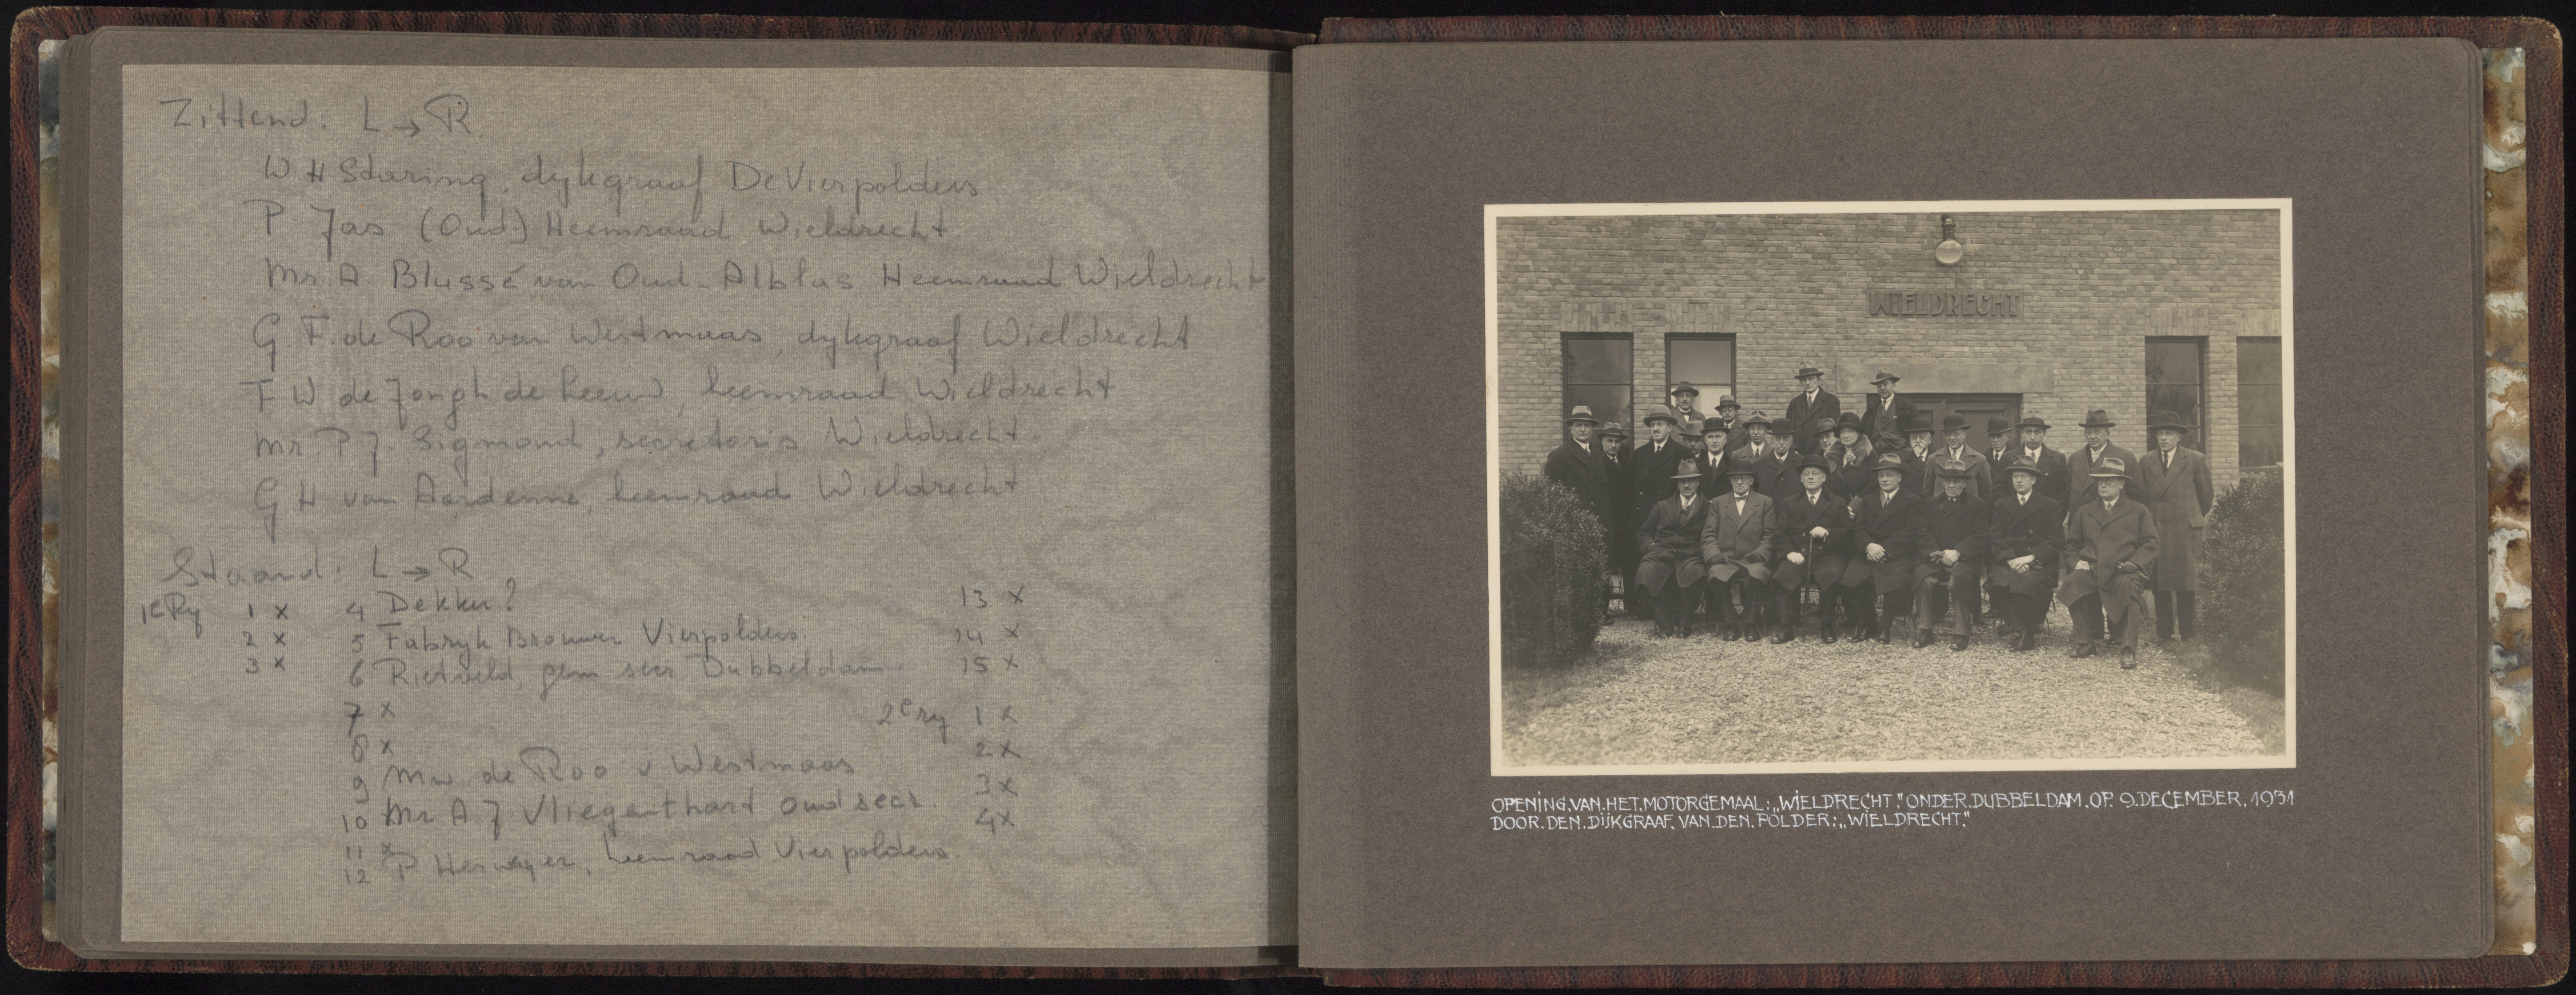 Zittend: L → R
W H Staring, dykgraaf De Vierpolders
P Jas (Oud-) Heemraad Wieldrecht
Mr. A Blussé van Oud-Alblas Heemraad Wieldrecht
G F. de Roo van Westmaas, dykgraaf Wieldrecht
F W de Jongh de Leeuw, heemraad Wieldrecht
Mr P J. Sigmond, secretaris Wieldrecht
G H van Aardenne, heemraad Wieldrecht
Staand: L → R
1e Ry 1 x
2 x
3 x
4 Dekker?
5 Fabryk Brouwer Vierpolders
6 Rietveld, gem secr Dubbeldam.
7 x
8 x
9 Mw de Roo v Westmaas
10 Mr A J Vliegenthart oud secr.
11 x
12 P Herweyer, heemraad Vierpolders.
13 x
14 x
15 x
2e ry 1 x
2 x
3 x
4 x
WIELDRECHT
OPENING.VAN.HET.MOTORGEMAAL:„WIELDRECHT." ONDER.DUBBELDAM.OP. 9.DECEMBER.1931
DOOR.DEN.DIJKGRAAF.VAN.DEN.POLDER:„WIELDRECHT."